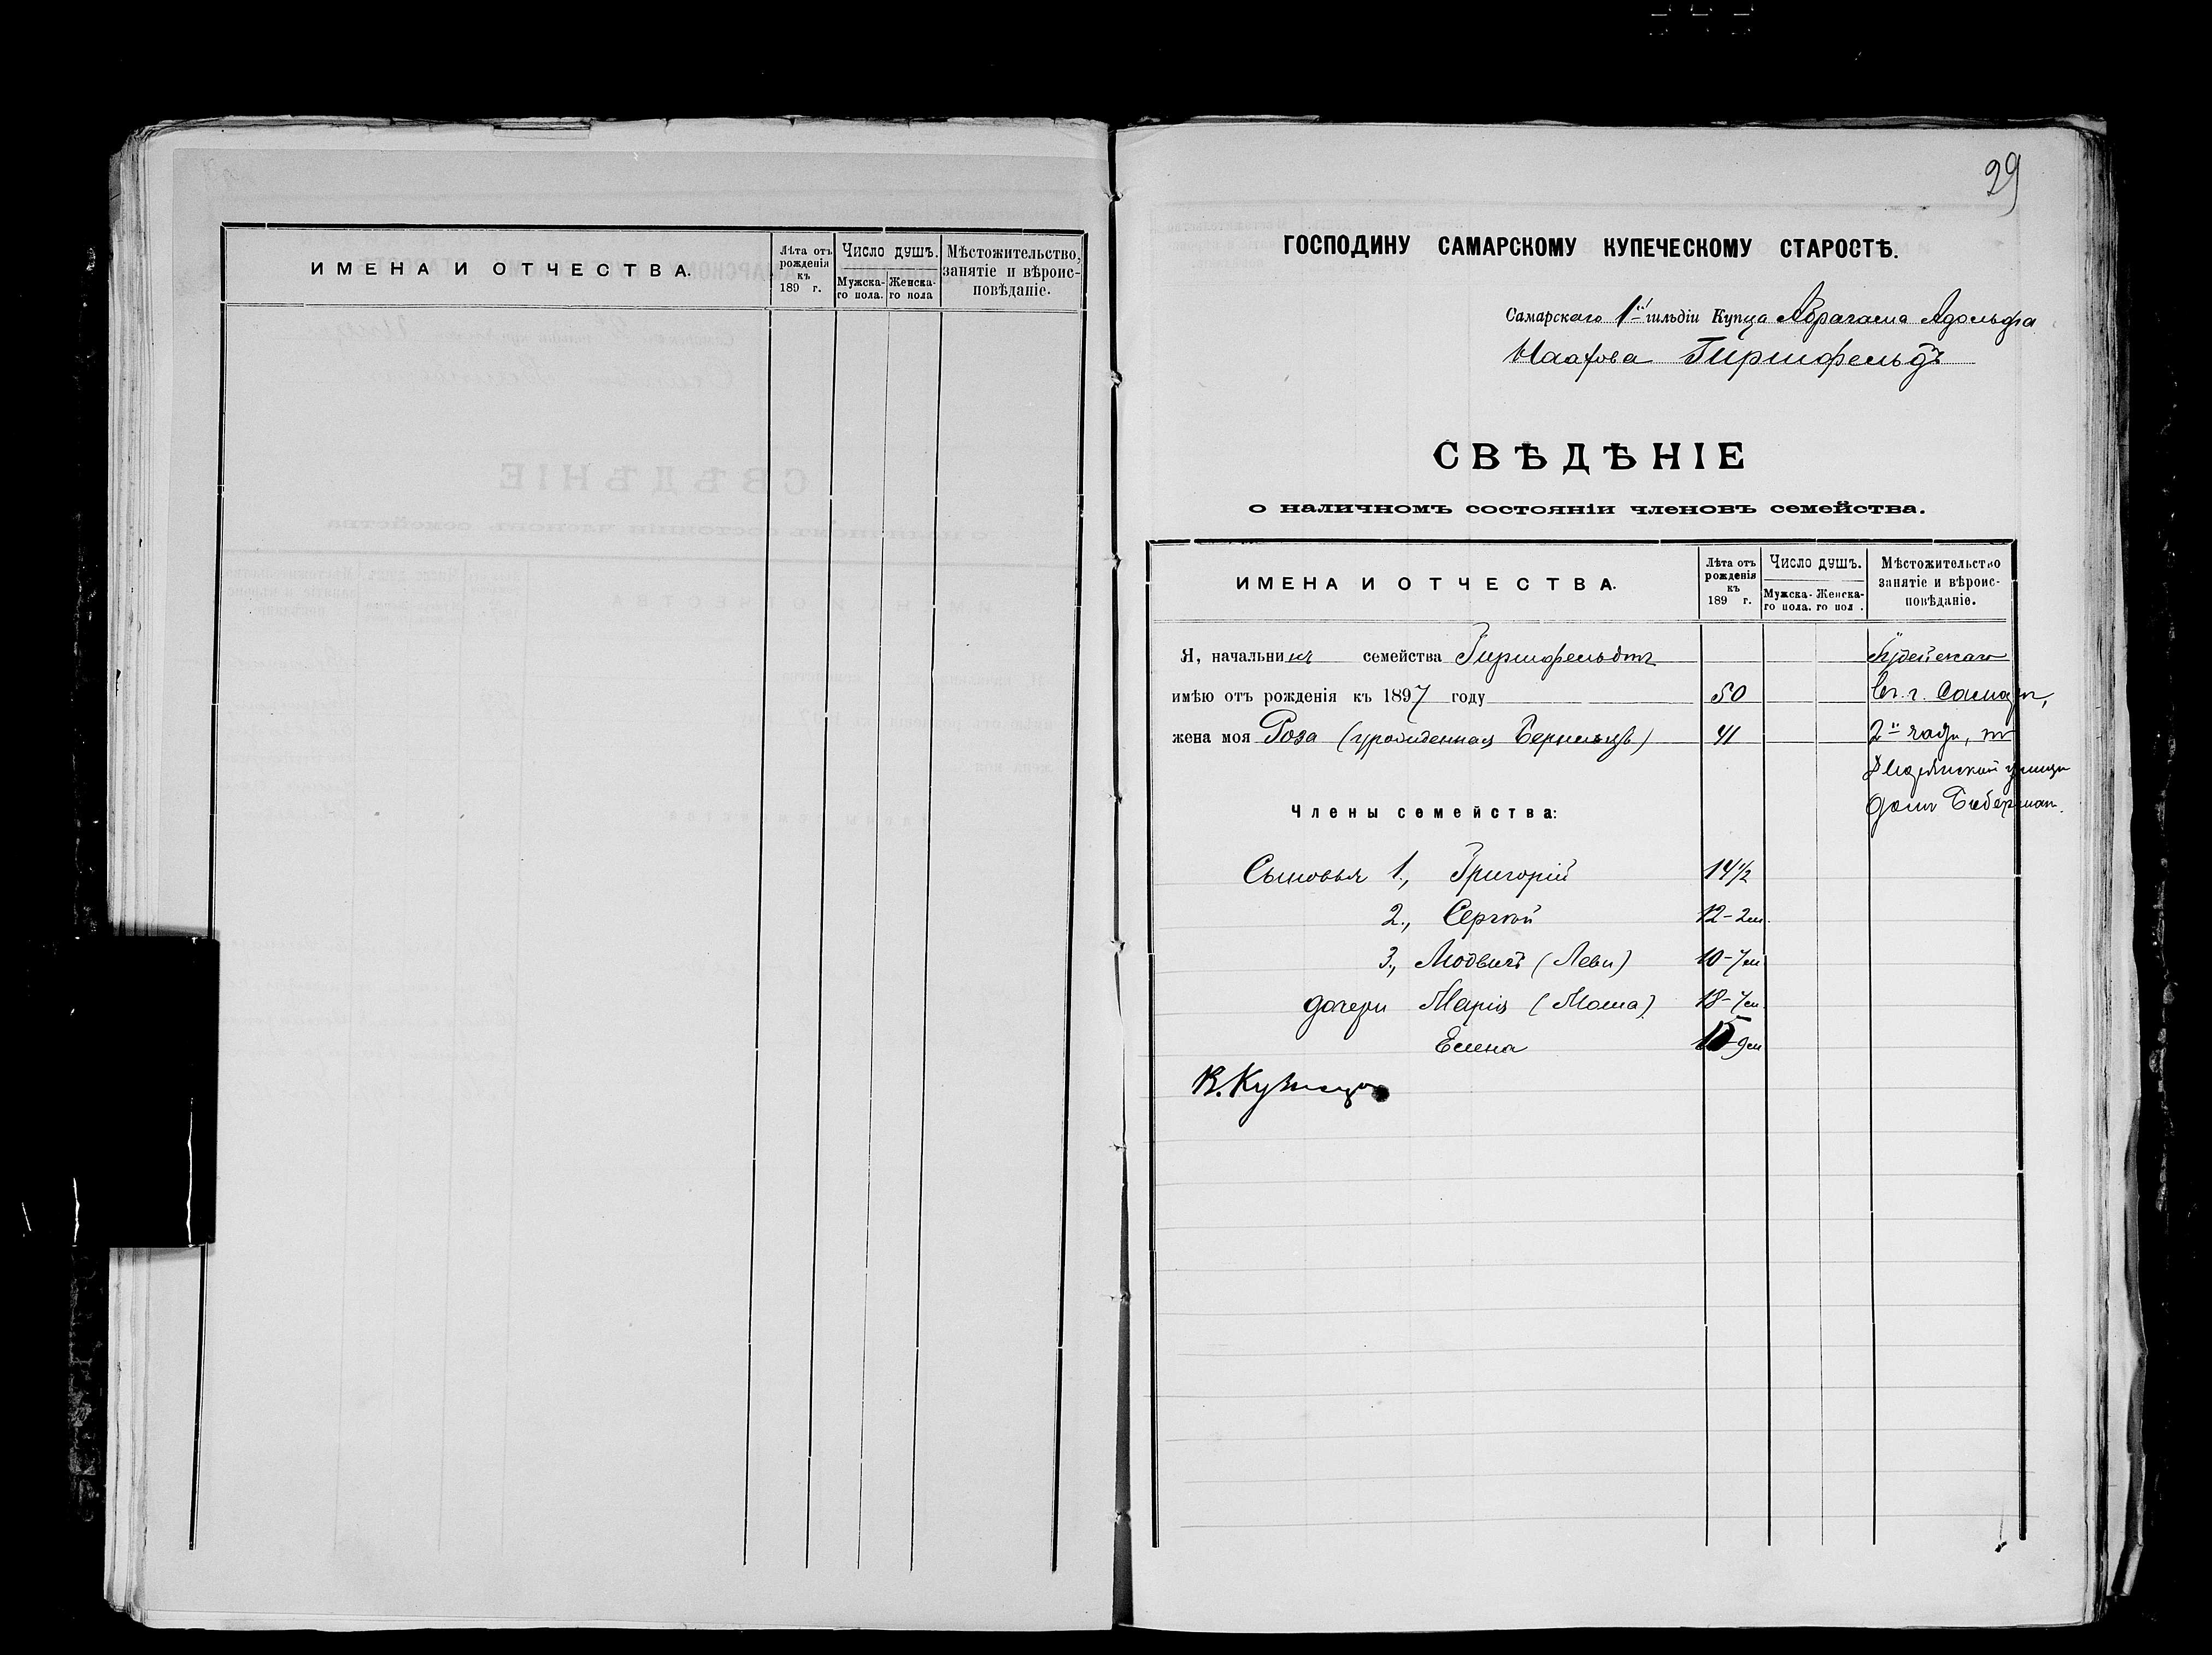 ИМЕНА И ОТЧЕСТВА.
Лѣта отъ рожденія къ 189 г.
Число душъ.
Мужска-го пола.
Женска-го пола
Мѣстожительство, занятіе и вѣроис-повѣданіе.
29
ГОСПОДИНУ САМАРСКОМУ КУПЕЧЕСКОМУ СТАРОСТѢ.
Самарскаго 1й гильдіи Купца Абрагама Адольфа
Гиршфельдъ
СВѢДѢНІЕ
о наличномъ состояніи членовъ семейства.
ИМЕНА И ОТЧЕСТВА.
Лѣта отъ рожденія къ 189 г.
Число душъ.
Мужска-го пола.
Женска-го пол .
Мѣстожительство занятіе и вѣроис-повѣданіе.
Я, начальникъ семейства Гиршфельдтъ Іудейскаго
имѣю отъ рожденія къ 1897 году 50 Въ г. Самарѣ,
жена моя Роза (урожденная) 41 2й части, на
улицѣ
Члены семейства: домъ
Сыновья 1., Григорій 14 1/2
2., Сергѣй 12-2м.
3., Людвигъ (Леви) 10-7м
дочери Марія (Маша) 18-7м.
Елена 15-9м
В. Кузнецов